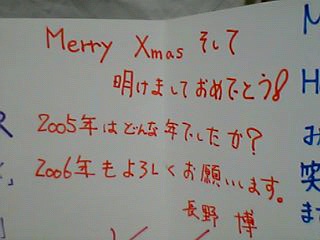 Merry Xmas そして
明けましておめでとう!
2005年はどんな年でしたか?
2006年もよろしくお願いします。
長野 博